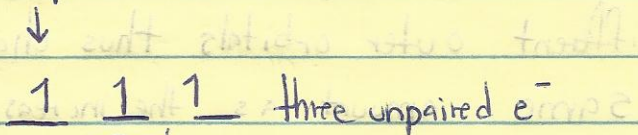 ↓
1 1 1 three unpaired e⁻